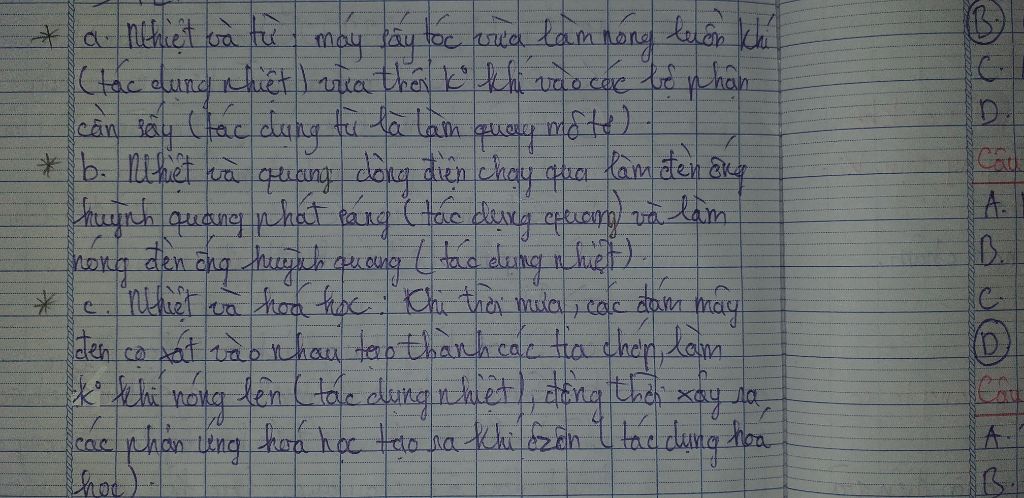 * a. Nhiệt và từ: máy sấy tóc vừa làm nóng luồn khí
(tác dụng nhiệt) vừa thổi k° khí vào các bộ phận
cần sấy (tác dụng từ là làm quay môtơ).
* b. Nhiệt và quang dòng điện chạy qua làm đèn ống
huỳnh quang phát sáng (tác dụng quang) và làm
nóng đèn ống huỳnh quang (tác dụng nhiệt).
* c. Nhiệt và hoá học: Khi trời mưa, các đám mây
đen cọ xát vào nhau tạo thành các tia chớp, làm
k° khí nóng lên (tác dụng nhiệt), đồng thời xảy ra
các phản ứng hoá học tạo ra khí ôzôn (tác dụng hoá
học).
B.
C.
D.
Câu
A.
B.
C.
D
Câu
A.
B.